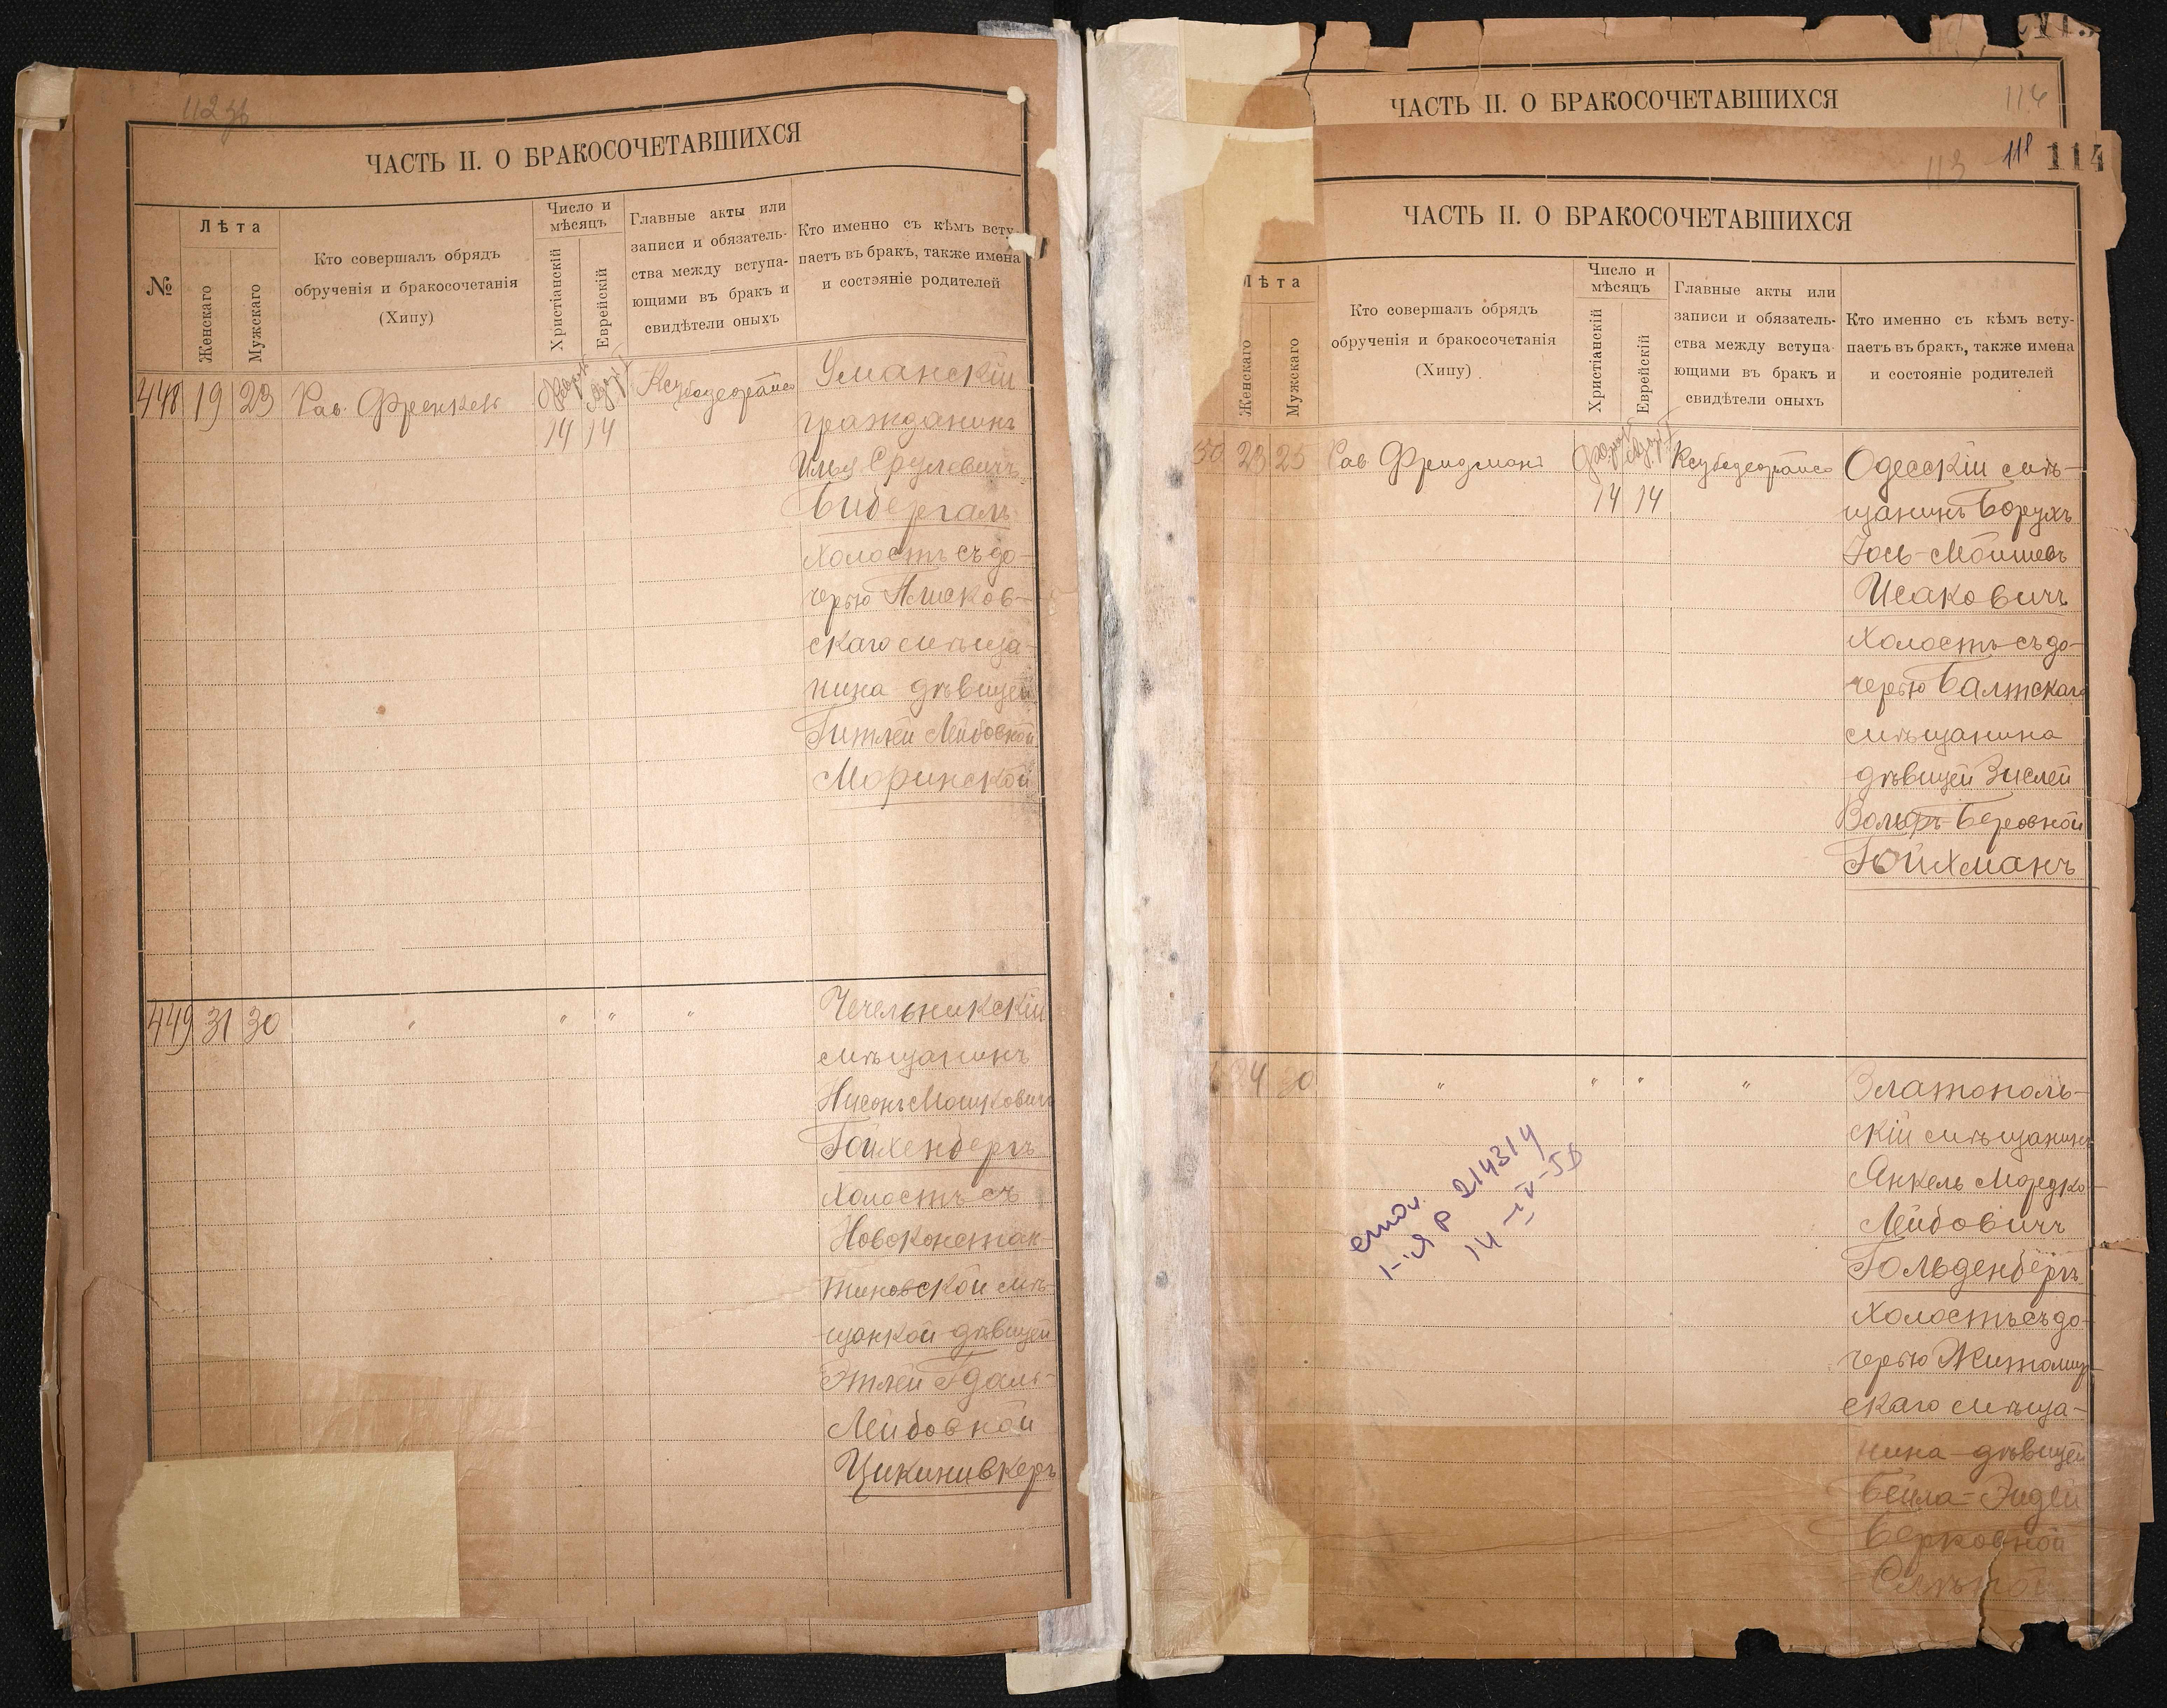 ЧАСТЬ II. О БРАКОСОЧЕТАВШИХСЯ
№
Лѣта
Женскаго
Мужскаго
Кто совершалъ обрядъ
обрученія и бракосочетанія
(Хипу)
Число и
мѣсяцъ
Христіанскій
Еврейскій
Главные акты или
записи и обязатель-
ства между вступа-
ющими въ бракъ и
свидѣтели оныхъ
Кто именно съ кѣмъ всту-
паетъ въ бракъ, также имена
и состояніе родителей
448 19 23 Рав. Френкель 14 14
Уманскій
гражданинъ
Илья Срулевичъ
Бибергалъ
холостъ съ до-
черью
скаго мѣща-
нина дѣвицей
Гитлей Лейбовной
Моринской
449 31 30 " " " "
Чечельникскій
мѣщанинъ
Нусонъ Мошковичъ
Гойхенбергъ
холостъ съ
Новоконстан-
тиновской мѣ-
щанкой дѣвицей
Этлей Гдаль-
Лейбовной
Цикиновкеръ
ЧАСТЬ II. О БРАКОСОЧЕТАВШИХСЯ
118 114
113
ЧАСТЬ II. О БРАКОСОЧЕТАВШИХСЯ
Лѣта
Женскаго
Мужскаго
Кто совершалъ обрядъ
обрученія и бракосочетанія
(Хипу)
Число и
мѣсяцъ
Христіанскій
Еврейскій
Главные акты или
записи и обязатель-
ства между вступа-
ющими въ бракъ и
свидѣтели оныхъ
Кто именно съ кѣмъ всту-
паетъ въ бракъ, также имена
и состояніе родителей
50 23 25 Рав. Фридманъ 14 14
Одесскій мѣ-
щанинъ Борухъ
Іось-Мойшевъ
Исаковичъ
холостъ съ до-
черью Балтскаго
мѣщанина
дѣвицей Зислей
Вольфъ-Беровной
Гойхманъ
24 " " " "
Златополь-
скій мѣщанинъ
Янкель Мордко-
Лейбовичъ
Гольденбергъ
холостъ съ до-
черью Житомир-
скаго мѣща-
нина дѣвицей
Бейла-Эйдлей
Берковной
214314
14-IV-58